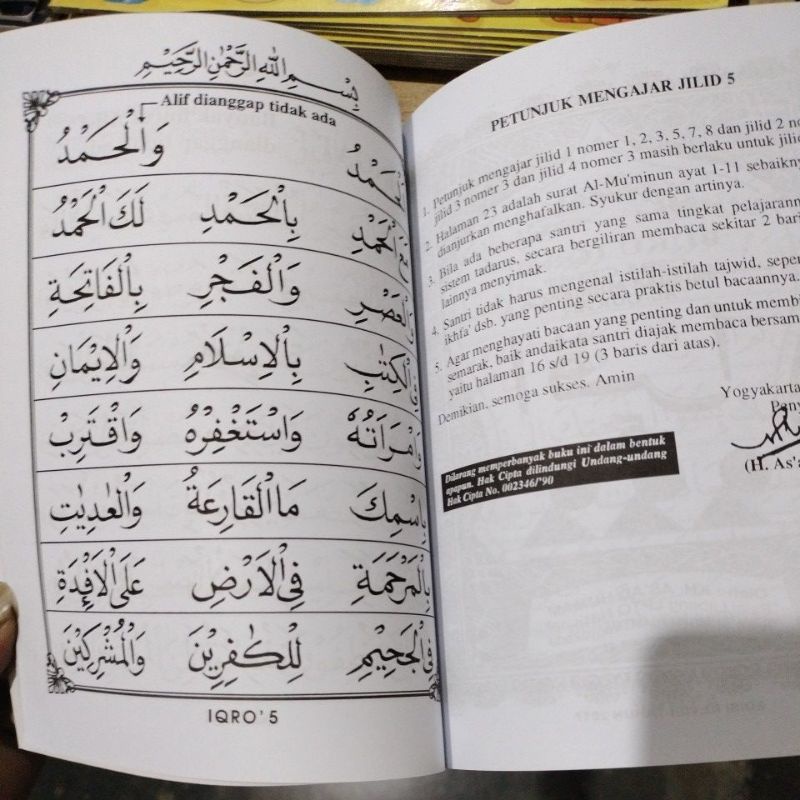 بِسْمِ اللهِ الرَّحْمٰنِ الرَّحِيْمِ
Alif dianggap tidak ada
وَالْحَمْدُ
لَكَ الْحَمْدُ بِالْحَمْدِ
وَالْعَصْرِ وَالْفَجْرِ بِالْفَاتِحَةِ
بِالْاِسْلَامِ وَالْاِيْمَانِ
وَامْرَاَتُهٗ وَاسْتَغْفِرْهُ وَاقْتَرِبْ
بِاسْمِكَ مَاالْقَارِعَةُ وَالْعٰدِيٰتِ
بِالْمَرْحَمَةِ فِى الْاَرْضِ عَلَى الْاَفْـِٕدَةِ
فِى الْجَحِيْمِ لِلْكٰفِرِيْنَ وَالْمُشْرِكِيْنَ
IQRO' 5
PETUNJUK MENGAJAR JILID 5
1. Petunjuk mengajar jilid 1 nomer 1, 2, 3, 5, 7, 8 dan jilid 2
jilid 3 nomer 3 dan jilid 4 nomer 3 masih berlaku untuk
2. Halaman 23 adalah surat Al-Mu'minun ayat 1-11
dianjurkan menghafalkan. Syukur dengan artinya.
3. Bila ada beberapa santri yang sama tingkat
sistem tadarus, secara bergiliran membaca sekitar 2
lainnya menyimak.
4. Santri tidak harus mengenal istilah-istilah tajwid,
ikhfa' dsb. yang penting secara praktis betul bacaannya.
5. Agar menghayati bacaan yang penting dan untuk
semarak, baik andaikata santri diajak membaca
yaitu halaman 16 s/d 19 (3 baris dari atas).
Demikian, semoga sukses. Amin
Yogyakarta
(H. As'a
Dilarang memperbanyak buku ini dalam bentuk
apapun. Hak Cipta dilindungi Undang-undang
Hak Cipta No. 002346/'90